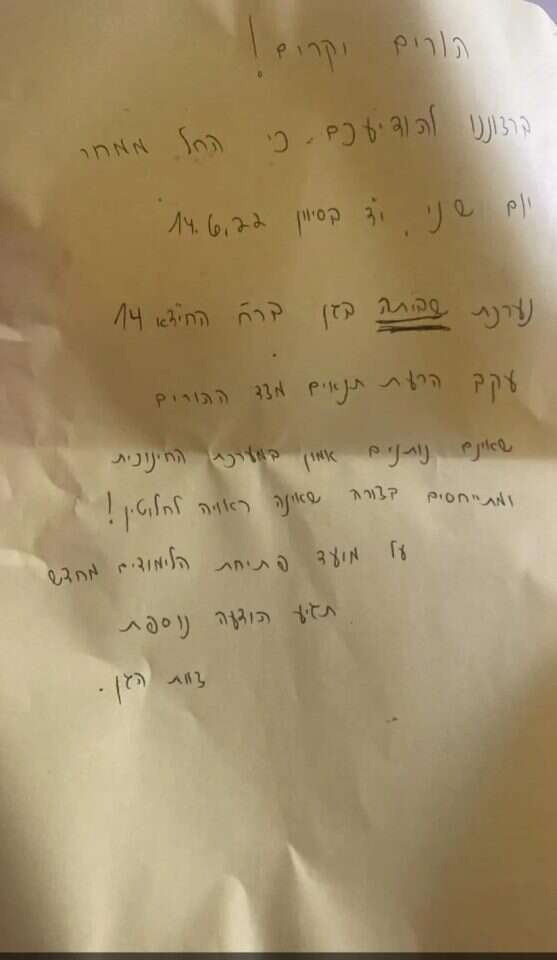 הורים יקרים!
ברצוננו להודיעכם כי החל ממחר
יום שני, י"ד בסיוון 14.6.22
נערכת שביתה בגן ברח' החיד"א 14
עקב הרעת תנאים מצד ההורים
שאינם נותנים אמון במערכת החינוכית
ומתייחסים בצורה שאינה ראויה לחלוטין!
על מועד פתיחת הלימודים מחדש
תגיע הודעה נוספת
צוות הגן.